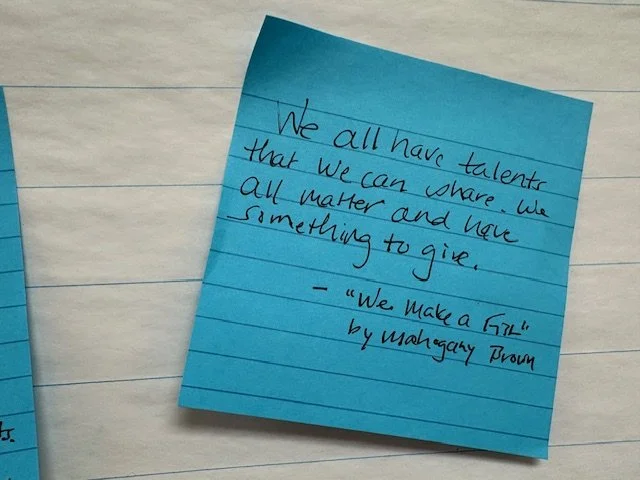 We all have talents
that we can share. We
all matter and have
something to give.
- "We make a
by Mahogany Brown